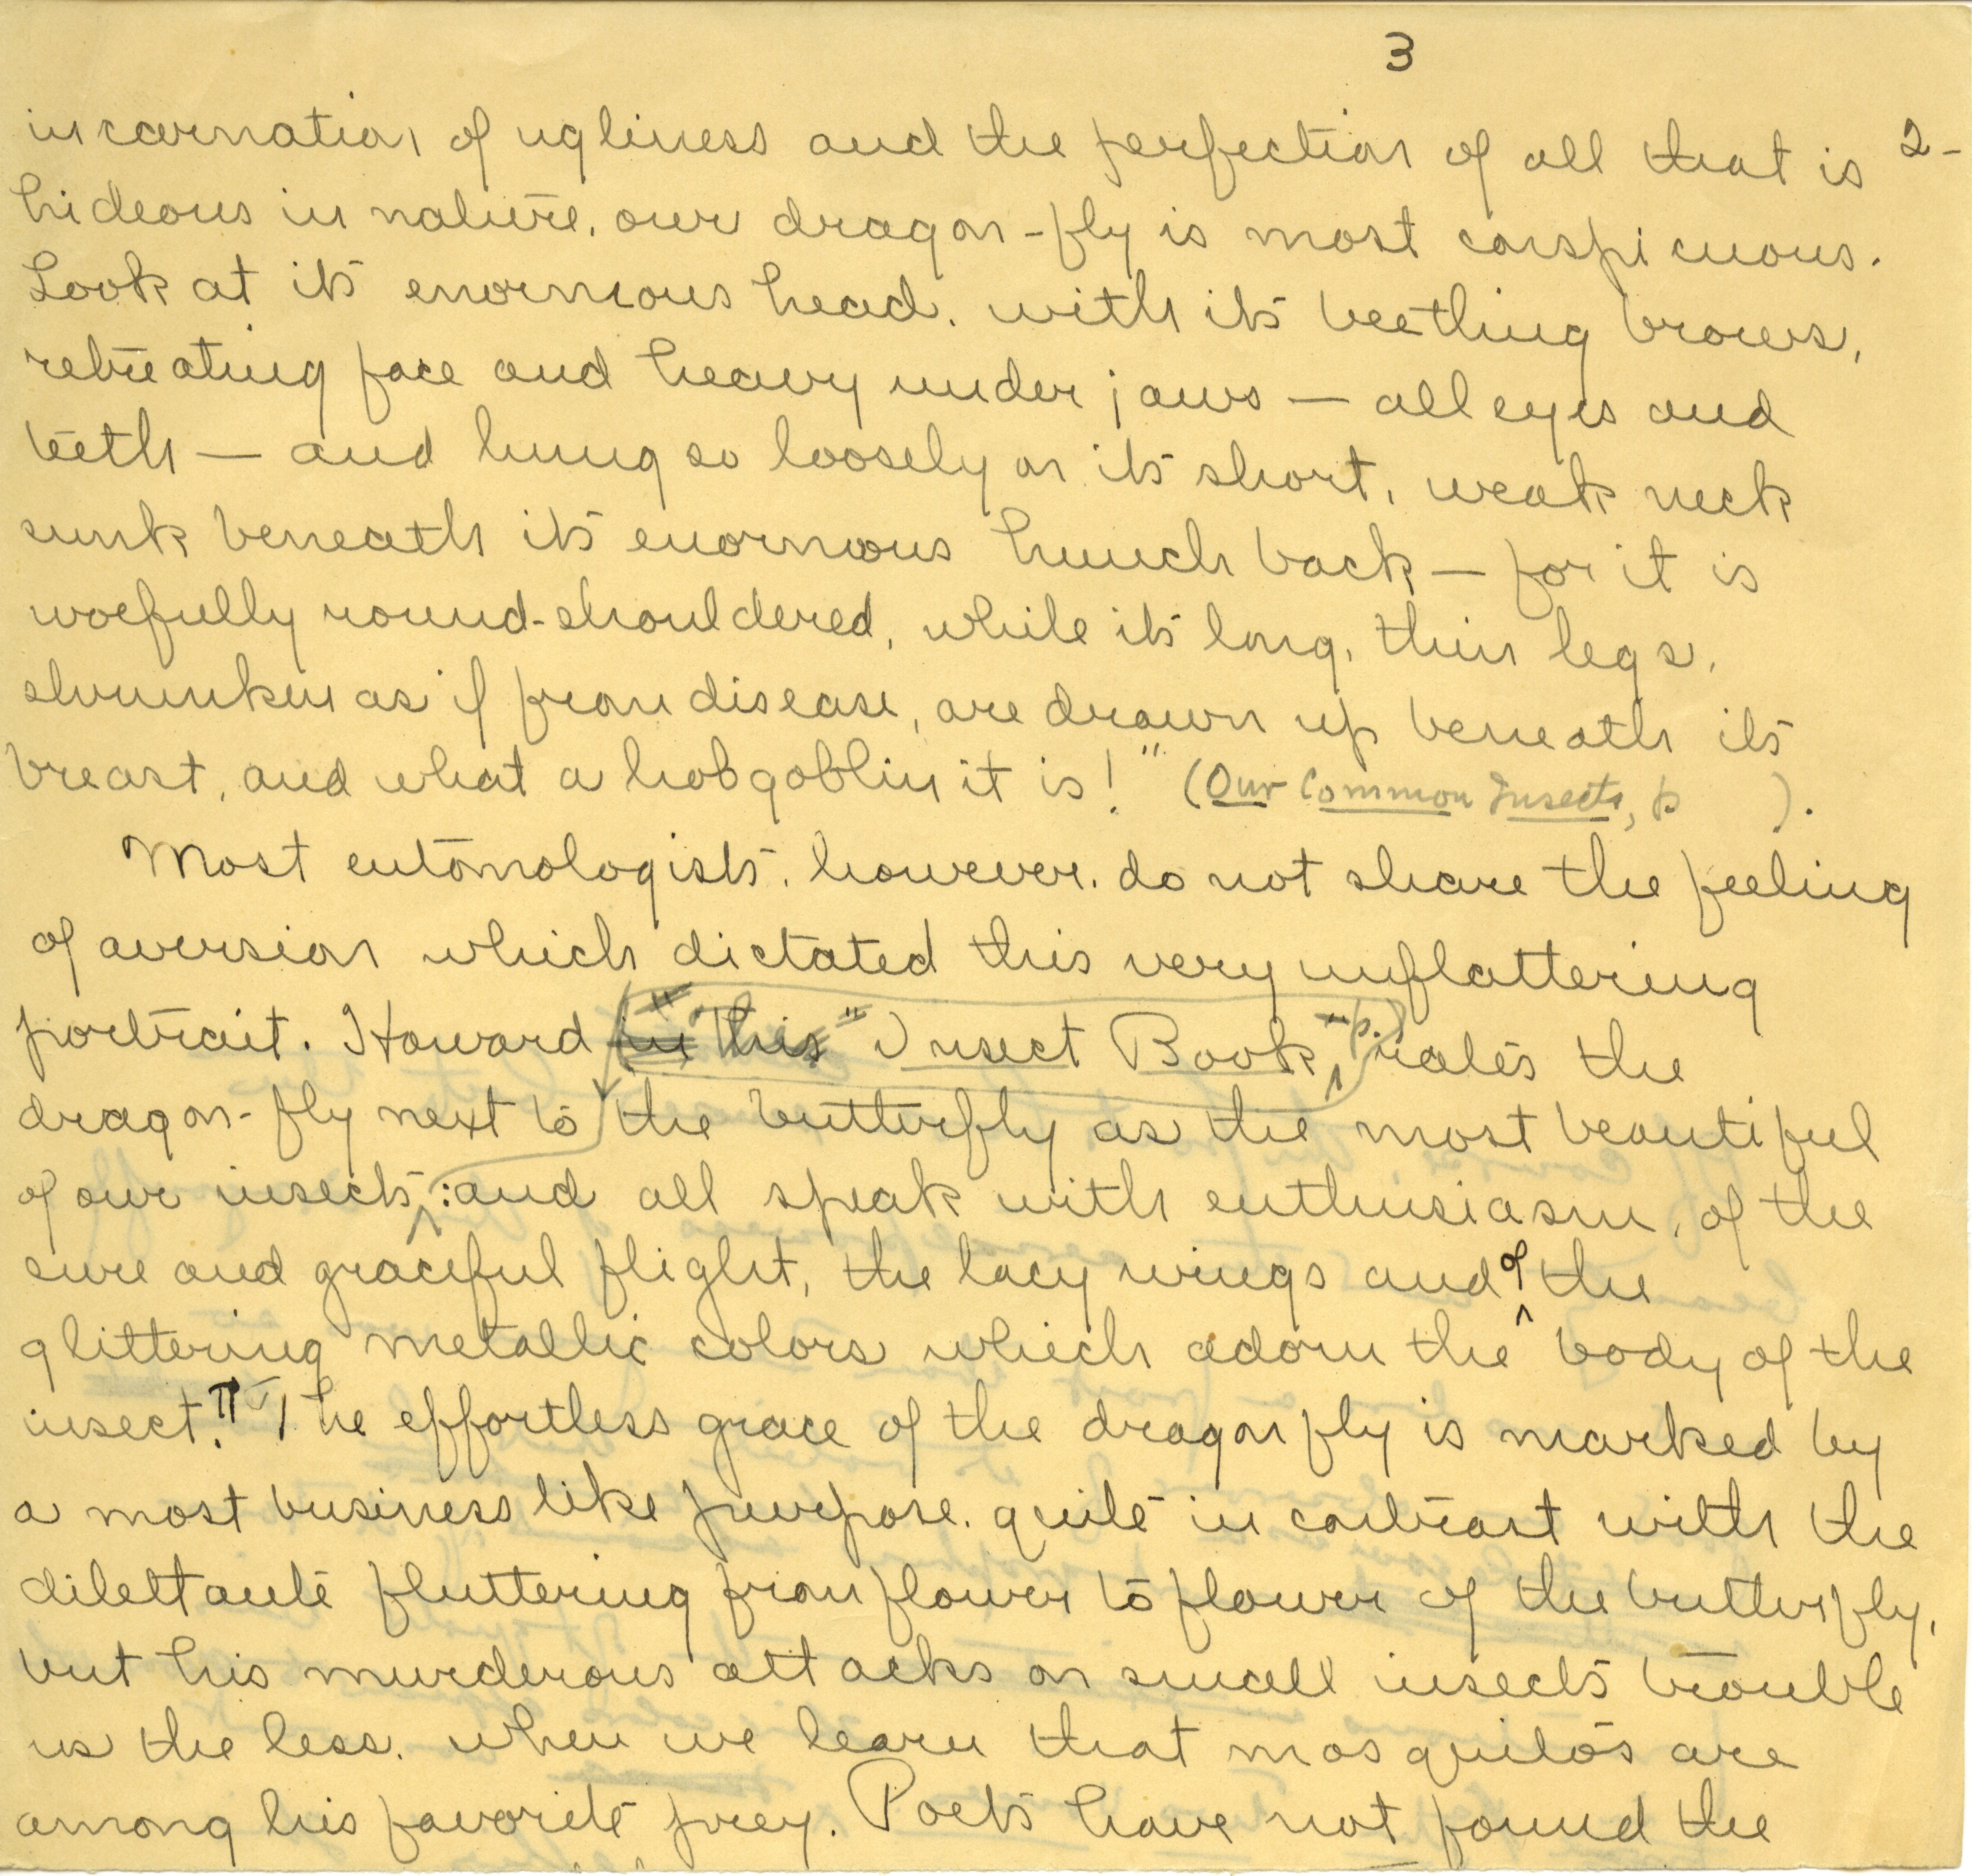 3
incarnation of ugliness and the perfection of all that is 2-
hideous in nature, our dragon-fly is most conspicuous.
Look at its enormous head, with its beetling brows,
retreating face and heavy under jaws — all eyes and
teeth — and hung so loosely on its short, weak neck
sunk beneath its enormous hunch back — for it is
woefully round-shouldered, while its long, thin legs,
shrunken as if from disease, are drawn up beneath its
breast, and what a hobgoblin it is!" (Our Common Insects, p ).
Most entomologists, however, do not share the feeling
of aversion which dictated this very unflattering
portrait. Howard in his "Insect Book, p.) rates the
dragon-fly next to the butterfly as the most beautiful
of our insects; and all speak with enthusiasm, of the
sure and graceful flight, the lacy wings and of the
glittering metallic colors which adorn the body of the
insect. ¶ The effortless grace of the dragon fly is marked by
a most business like purpose, quite in contrast with the
dilettante fluttering from flower to flower of the butterfly,
but his murderous attacks on small insects trouble
us the less, when we learn that mosquitos are
among his favorite prey. Poets have not found the